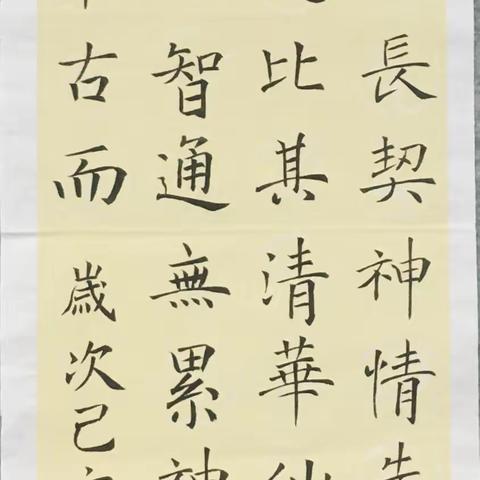 長契神情先
比其清華仙
智通無累神
古而
歲次己